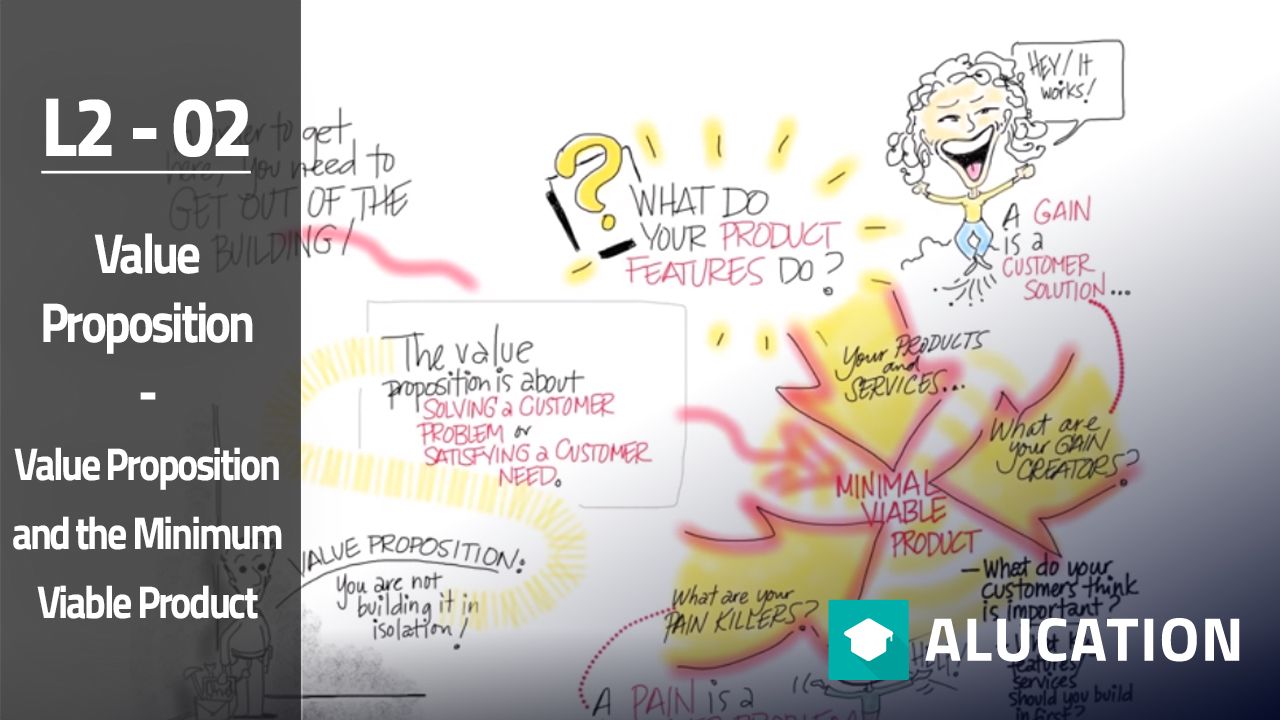 L2 - 02
Value
Proposition
-
Value Proposition
and the Minimum
Viable Product
to get
here, you need to
GET OUT OF THE
BUILDING!
?
WHAT DO
YOUR PRODUCT
FEATURES DO?
HEY! IT
works!
A GAIN
is a
CUSTOMER
SOLUTION...
The value
proposition is about
SOLVING a CUSTOMER
PROBLEM or
SATISFYING a CUSTOMER
NEED.
Your PRODUCTS
and
SERVICES...
What are
your GAIN
CREATORS?
MINIMAL
VIABLE
PRODUCT
VALUE PROPOSITION:
You are not
building it in
isolation!
What are your
PAIN KILLERS?
- What do your
customers think
is important?
features/
services
should you build
in first?
HELP!
A PAIN is a
PROBLEM
ALUCATION